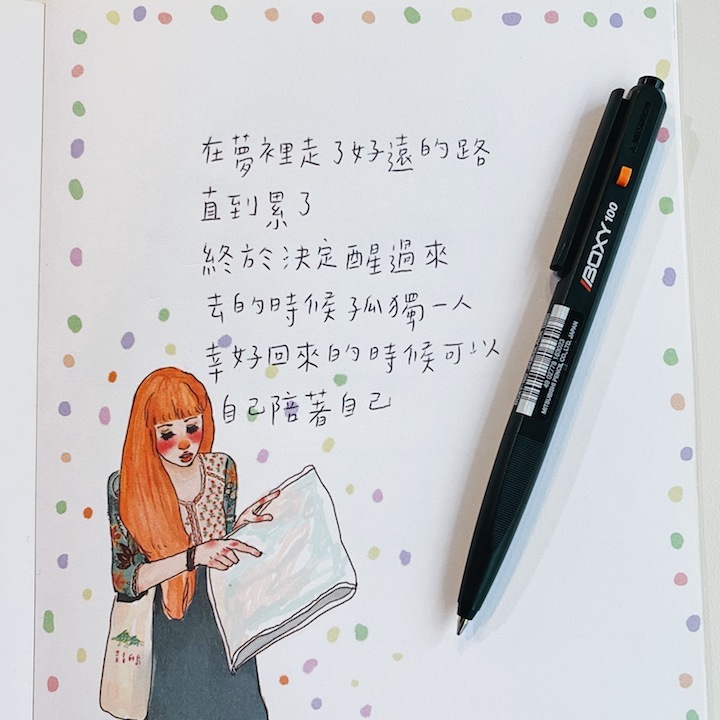 在夢裡走了好遠的路
直到累了
終於決定醒過來
去的時候孤獨一人
幸好回來的時候可以
自己陪著自己
BOXY 100
MITSUBISHI PENCIL CO.,LTD. JAPAN